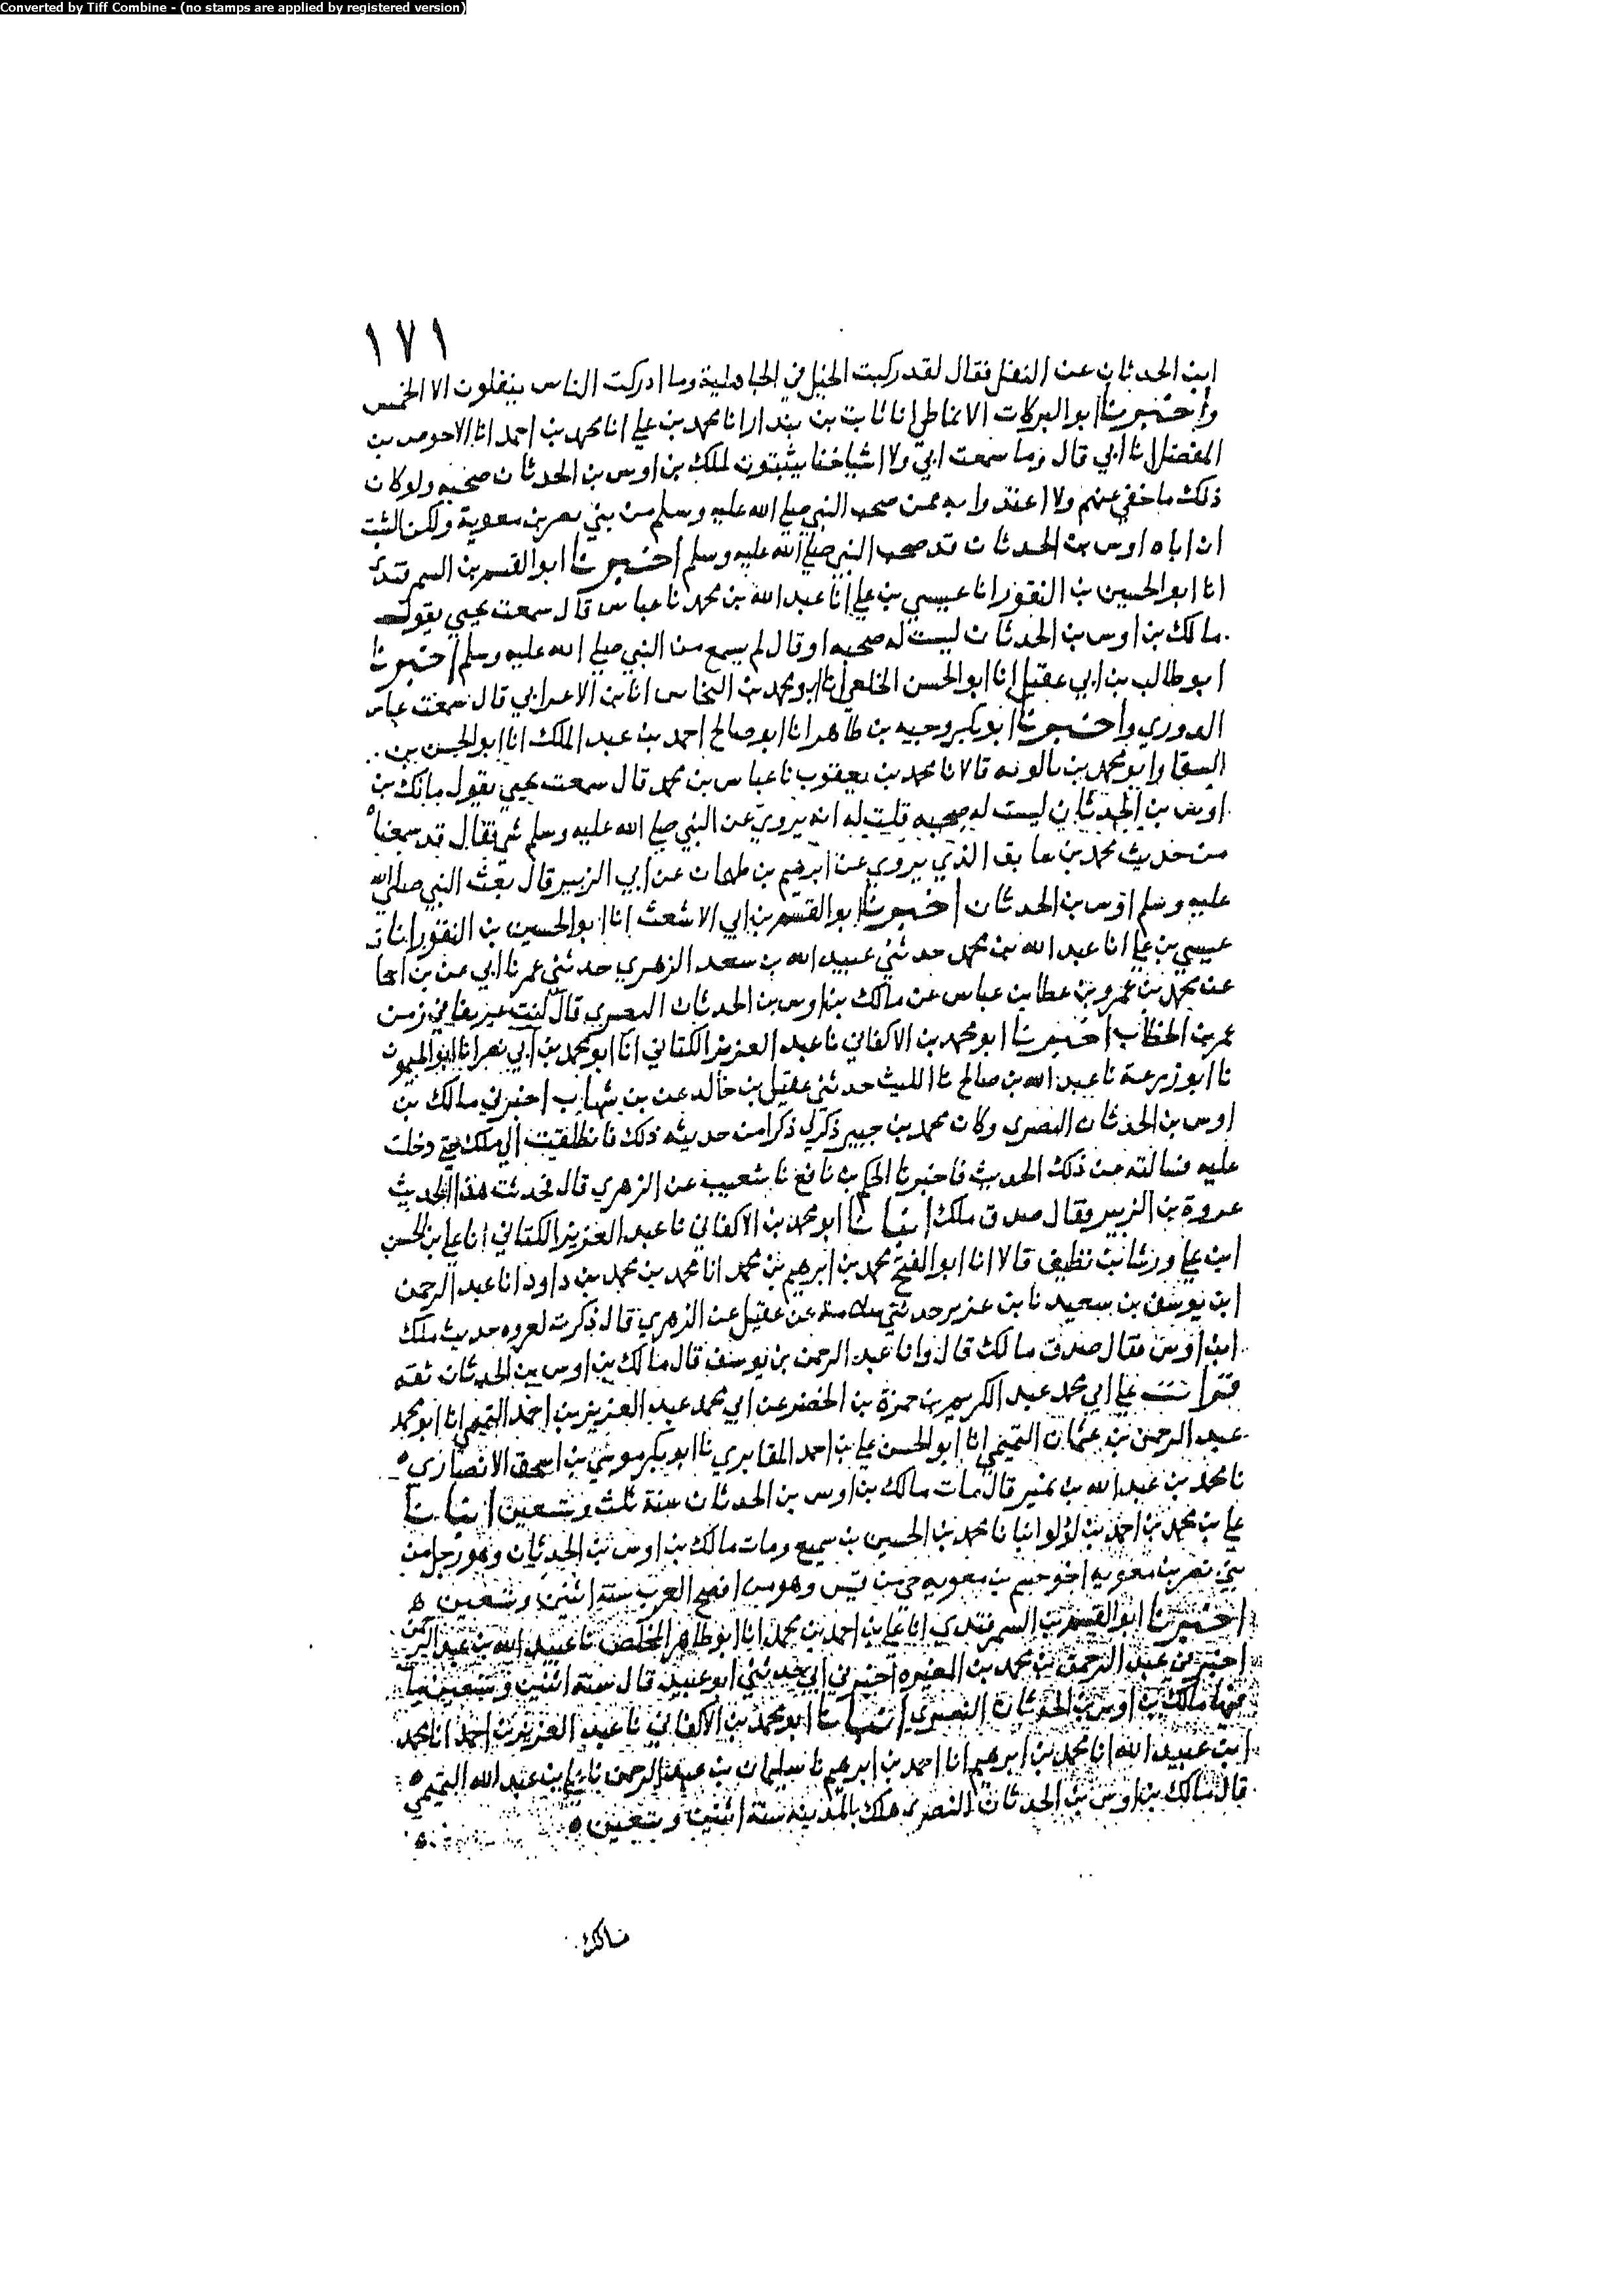 Converted by Tiff Combine - (no stamps are applied by registered version)
١٧١
ابن الحدثان عن النفل فقال لقد ركبت الخيل في الجاهلية وما ادركت الناس ينفلون الا الخمس
واخبرنا ابو البركات الانماطي انا ثابت بن بندار انا محمد بن علي انا محمد بن احمد انا الاحوص بن
المفضل نا ابي قال وما سمعت ابي ولا اشياخنا يثبتون لملك بن اوس بن الحدثان صحبه ولو كان
ذلك ما خفي عنهم ولا اعتدوا به ممن صحب النبي صلي الله عليه وسلم من بني نصر بن معوية ولكن الثبت
ان اباه اوس بن الحدثان قد صحب النبي صلي الله عليه وسلم اخبرنا ابو القسم بن السمرقندي
انا ابو الحسين بن النقور انا عيسي بن علي انا عبد الله بن محمد نا عباس قال سمعت يحيي يقول
مالك بن اوس بن الحدثان ليست له صحبه او قال لم يسمع من النبي صلي الله عليه وسلم اخبرنا
ابو طالب بن ابي عقيل انا ابو الحسن الخلعي انا ابو محمد بن النخاس انا بن الاعرابي قال سمعت عباس
الدوري واخبرنا ابو بكر وجيه بن طاهر انا ابو صالح احمد بن عبد الملك انا ابو الحسن بن
السقا وابو محمد بن بالويه قالا نا محمد بن يعقوب نا عباس بن محمد قال سمعت يحيي يقول مالك بن
اوس بن الحدثان ليست له صحبه قلت له انه يروي عن النبي صلي الله عليه وسلم شي فقال قد سمعناه
من حديث محمد بن سابق الذي يروي عن ابرهيم بن طهمان عن ابي الزبير قال بعث النبي صلي الله
عليه وسلم اوس بن الحدثان اخبرنا ابو القسم بن ابي الاشعث انا ابو الحسين بن النقور انا
عيسي بن علي انا عبد الله بن محمد حدثني عبيد الله بن سعد الزهري حدثني عمر نا ابي عن بن اسحا
عن محمد بن عمرو بن عطا بن عباس عن مالك بن اوس بن الحدثان البصري قال كنت عريفا في زمن
عمر بن الخطاب اخبرنا ابو محمد بن الاكفاني نا عبد العزيز الكتاني انا ابو محمد بن ابي نصر انا ابو الميمون
نا ابو زرعة نا عبد الله بن صالح نا الليث حدثني عقيل بن خالد عن بن شهاب اخبرني مالك بن
اوس بن الحدثان النصري وكان محمد بن جبير ذكر لي ذكرا من حديثه ذلك فانطلقت الي ملك حتي دخلت
عليه فسالته عن ذلك الحديث فاخبرنا الحكم بن نافع نا شعيب عن الزهري قال فحدثت هذا الحديث
عروة بن الزبير فقال صدق ملك انبانا ابو محمد بن الاكفاني نا عبد العزيز الكتاني انا علي بن الحسن
ابن علي ورشا بن نظيف قالا انا ابو الفتح محمد بن ابرهيم بن محمد انا محمد بن محمد بن داود انا عبد الرحمن
ابن يوسف بن سعيد نا بن عزيز حدثني سلامة عن عقيل عن الزهري قال ذكرت لعروه حديث ملك
ابن اوس فقال صدق مالك قال وانا عبد الرحمن بن يوسف قال مالك بن اوس بن الحدثان ثقه
قرات علي ابي محمد عبد الكريم بن حمزة بن الخضر عن ابي محمد عبد العزيز بن احمد التميمي انا ابو محمد
عبد الرحمن بن عثمان التميمي انا ابو الحسن علي بن احمد المقابري نا ابو بكر موسي بن اسحق الانصاري
نا محمد بن عبد الله بن نمير قال مات مالك بن اوس بن الحدثان سنة ثلث وتسعين انبانا
علي بن محمد بن احمد بن لولو انبانا محمد بن الحسين بن سميع ومات مالك بن اوس بن الحدثان وهو رجل من
بني نصر بن معويه اخو جشم بن معويه من قيس وهو من افصح العرب سنة اثنين وتسعين
اخبرنا ابو القسم بن السمرقندي انا علي بن احمد بن محمد انا ابو طاهر المخلص نا عبيد الله بن عبد الرحمن
اخبرني عبد الرحمن بن محمد بن المغيره اخبرني ابي حدثني ابو عبيد قال سنة اثنين وتسعين فيها
مالك بن اوس بن الحدثان النصري انبانا ابو محمد بن الاكفاني نا عبد العزيز بن احمد انا محمد
ابن عبيد الله انا محمد بن ابرهيم انا احمد بن ابرهيم نا سليمان بن عبد الرحمن نا علي بن عبد الله التميمي
قال مالك بن اوس بن الحدثان النصري هلك بالمدينه سنة اثنين وتسعين
مالك